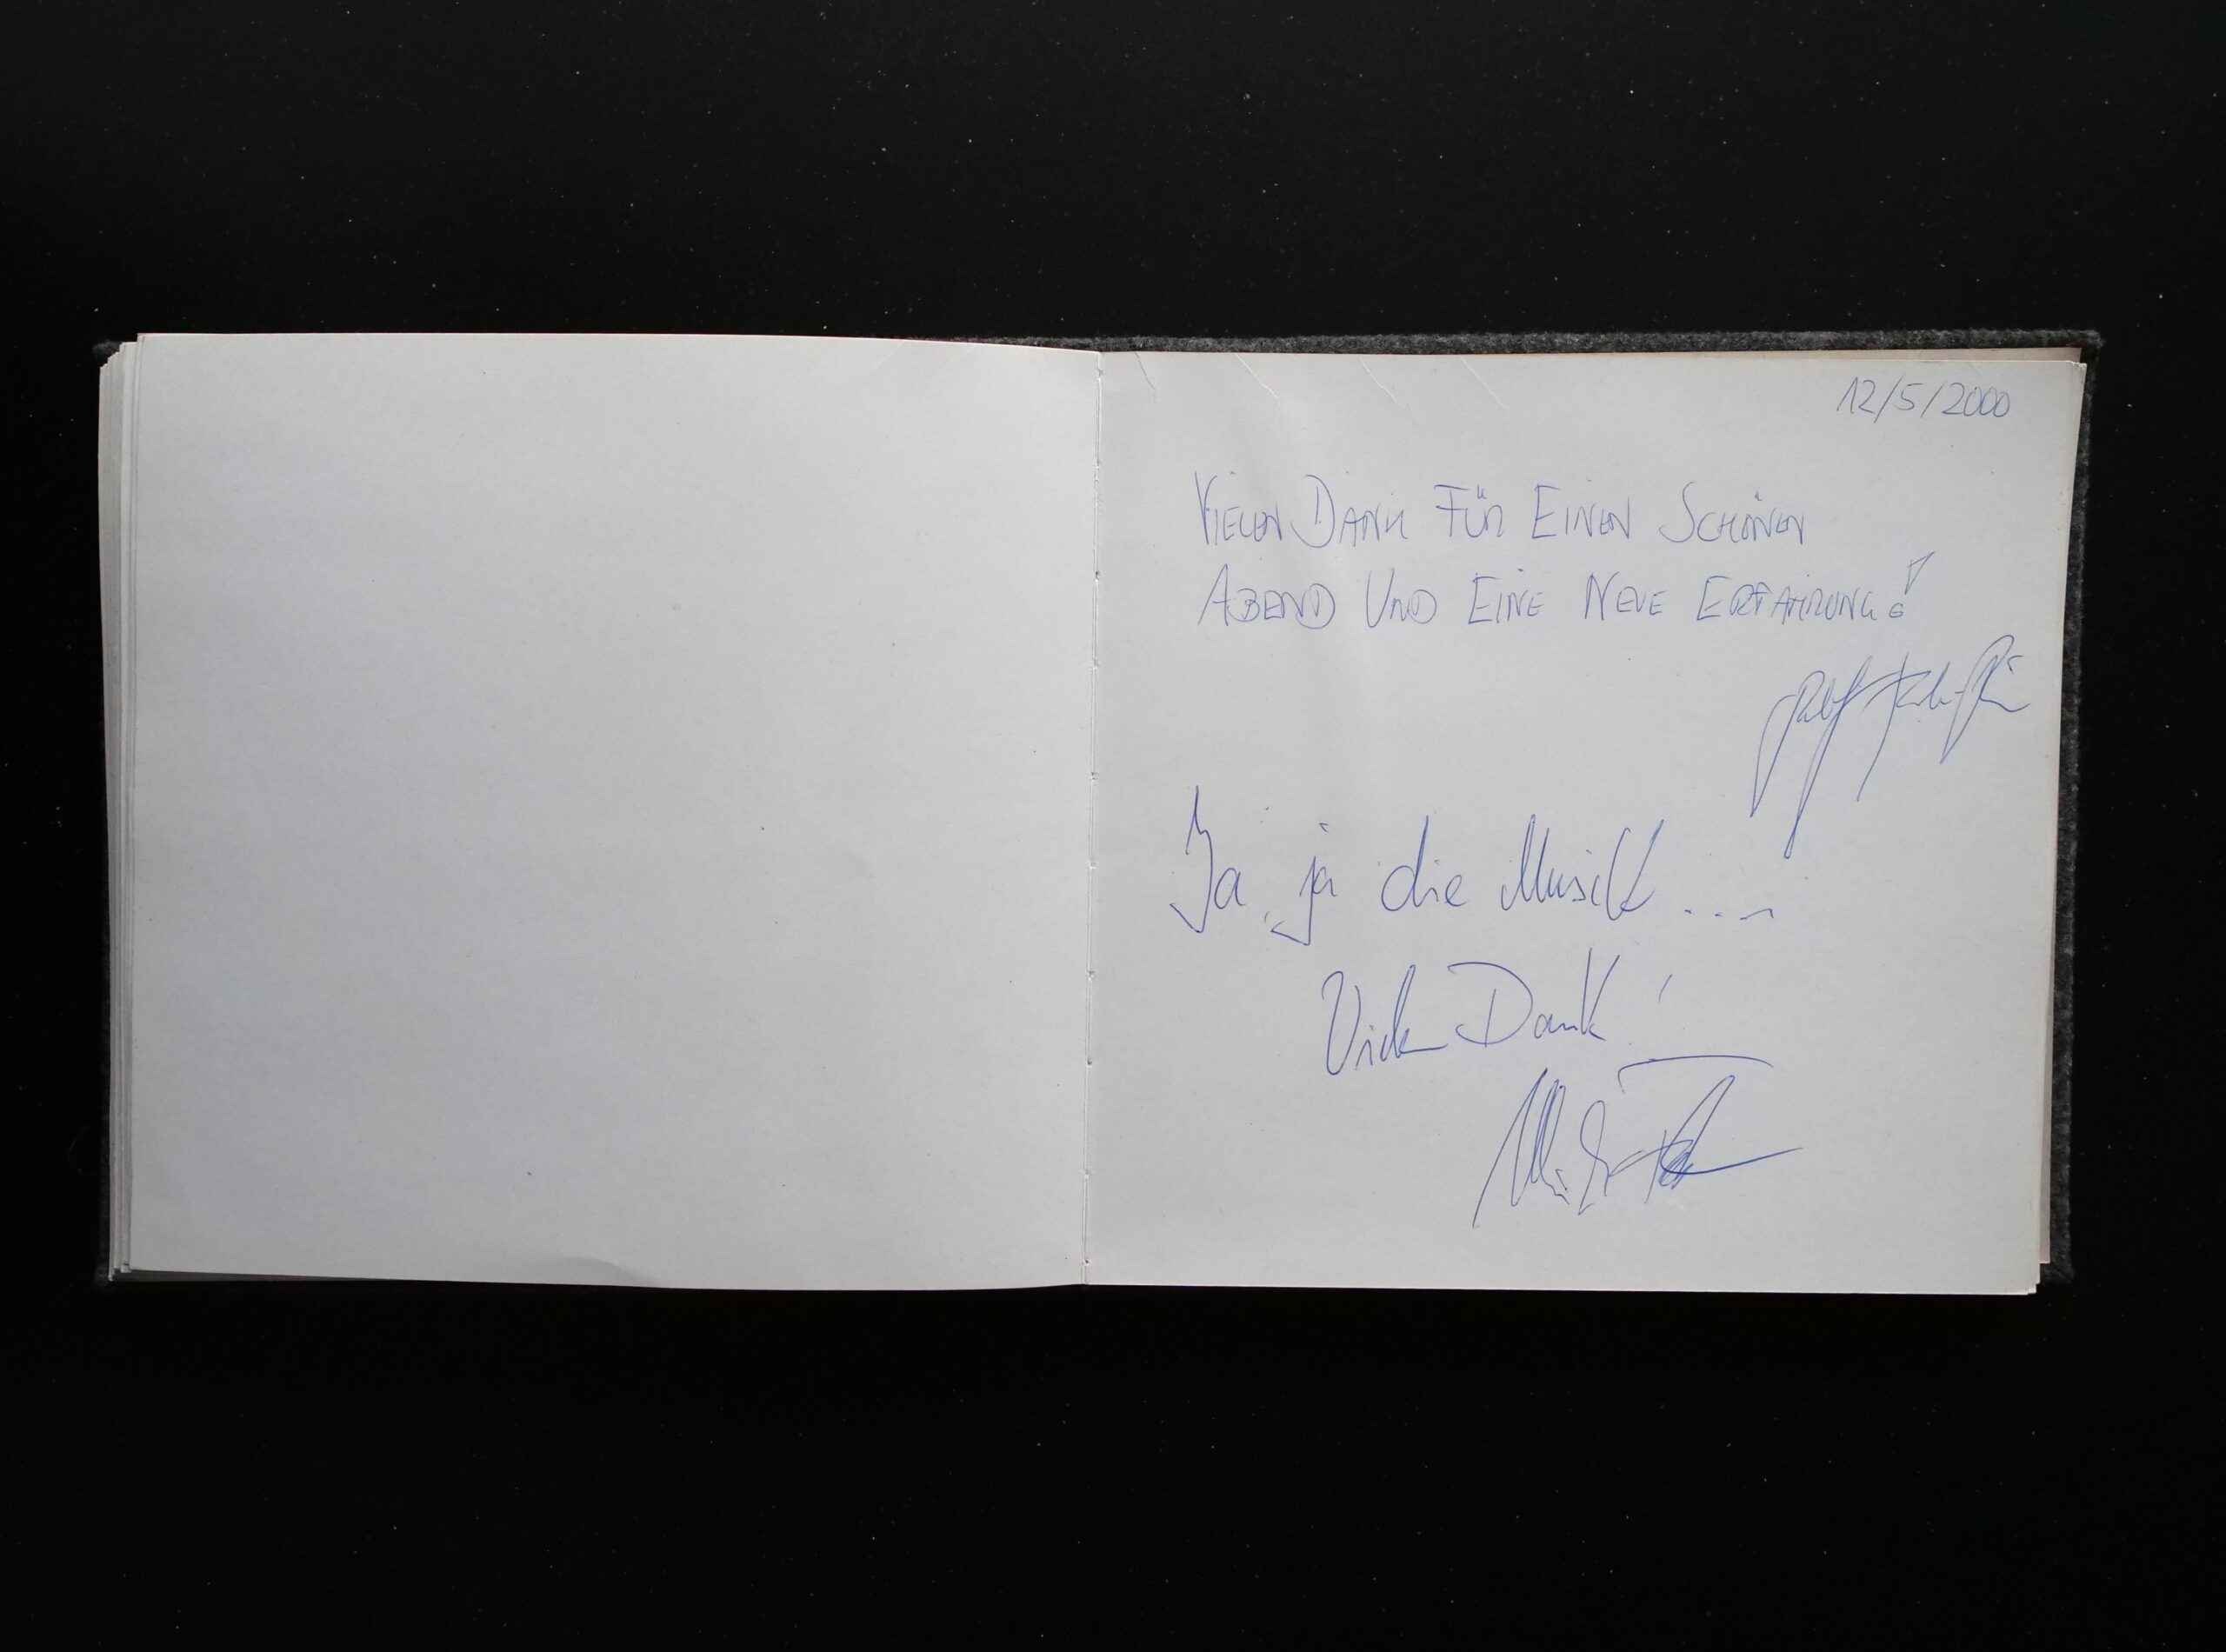 12/5/2000
VIELEN DANK FÜR EINEN SCHÖNEN
ABEND UND EINE NEUE ERFAHRUNG!
Ja, ja die Musik ...
Vielen Dank!